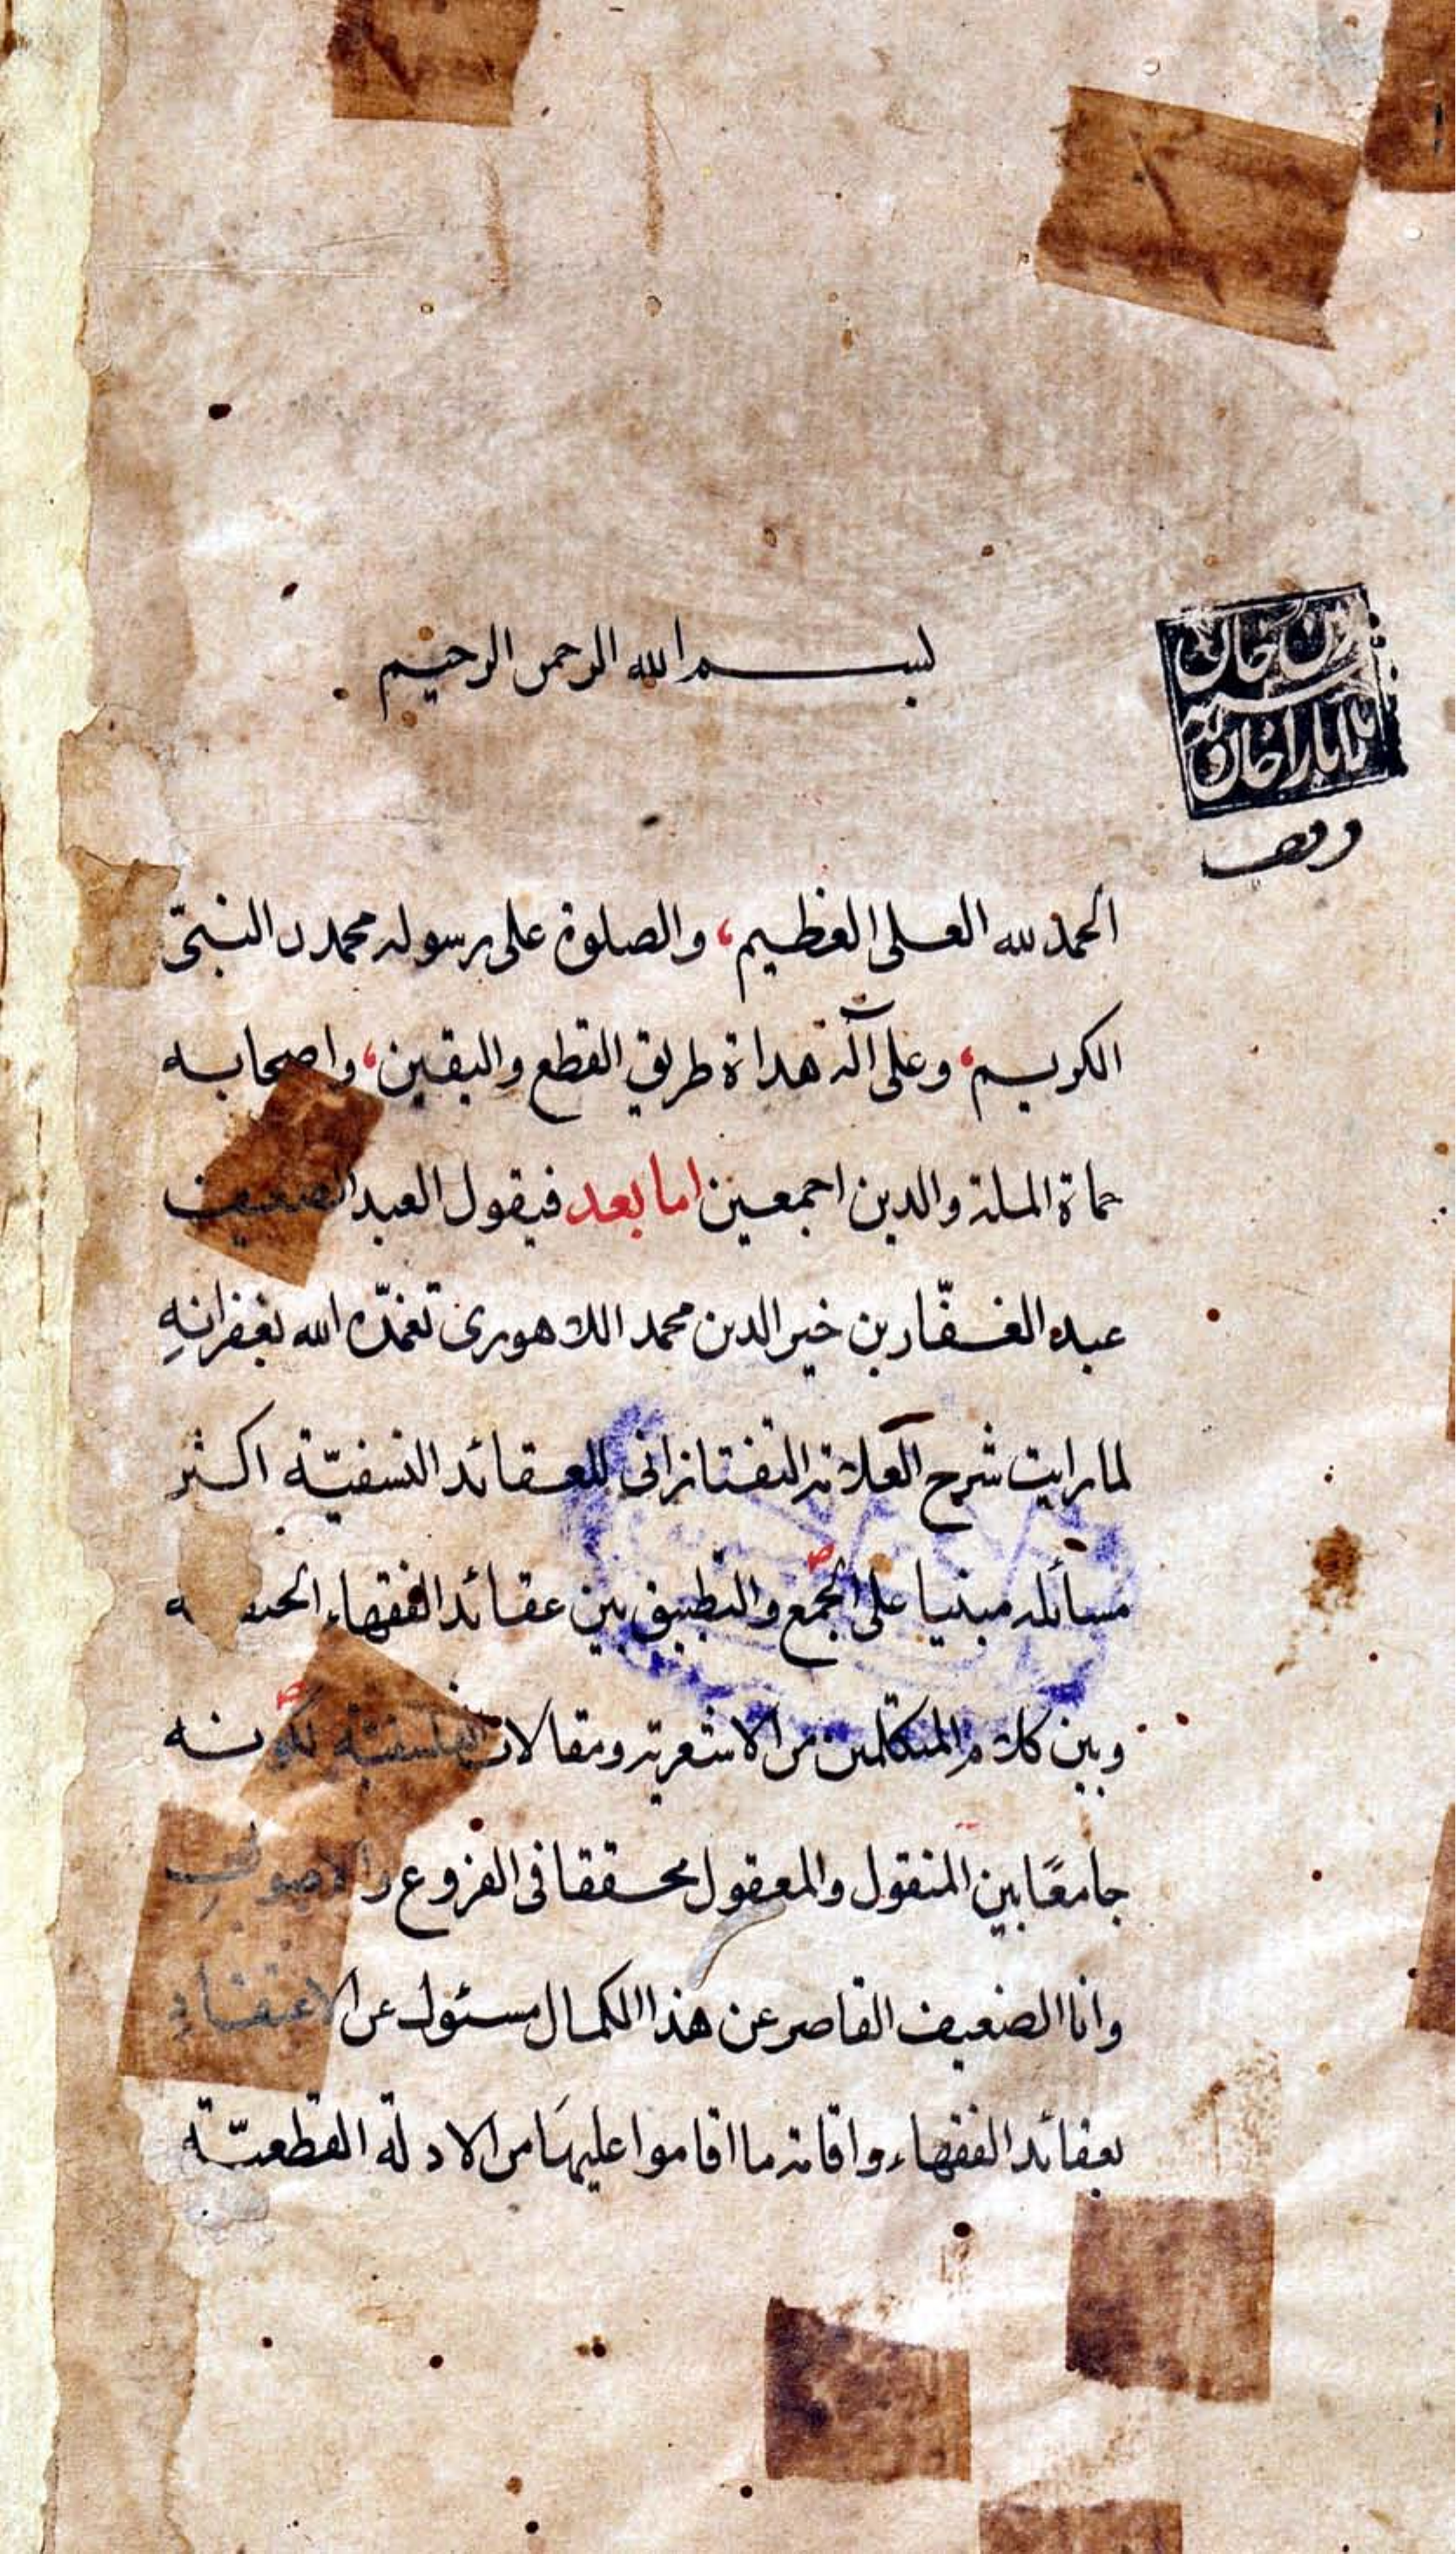 بسم الله الرحمن الرحيم
وقف
الحمد لله العلى العظيم، والصلوة على رسوله محمدن النبىّ
الكريم، وعلى آله هداة طريق القطع واليقين، واصحابه
حماة الملة والدين اجمعين اما بعد فيقول العبد الضعيف
عبده الغفّار بن خير الدين محمد اللاهورى تغمّده الله بغفرانهِ
لما رايت شرح العلامة التفتازانى للعقائد النسفيّة اكثر
مسائله مبنيا على الجمع والتطبيق بين عقائد الفقهاء
وبين كلام المتكلمين من الاشعرية ومقالات الفلسفية لكونه
جامعًا بين المنقول والمعقول محققا فى الفروع والاصولِ
وانا الضعيف القاصر عن هذا الكمال مسئول عن الاعتقادِ
بعقائد الفقهاء واقامة ما اقاموا عليهَا من الادلة القطعيّة